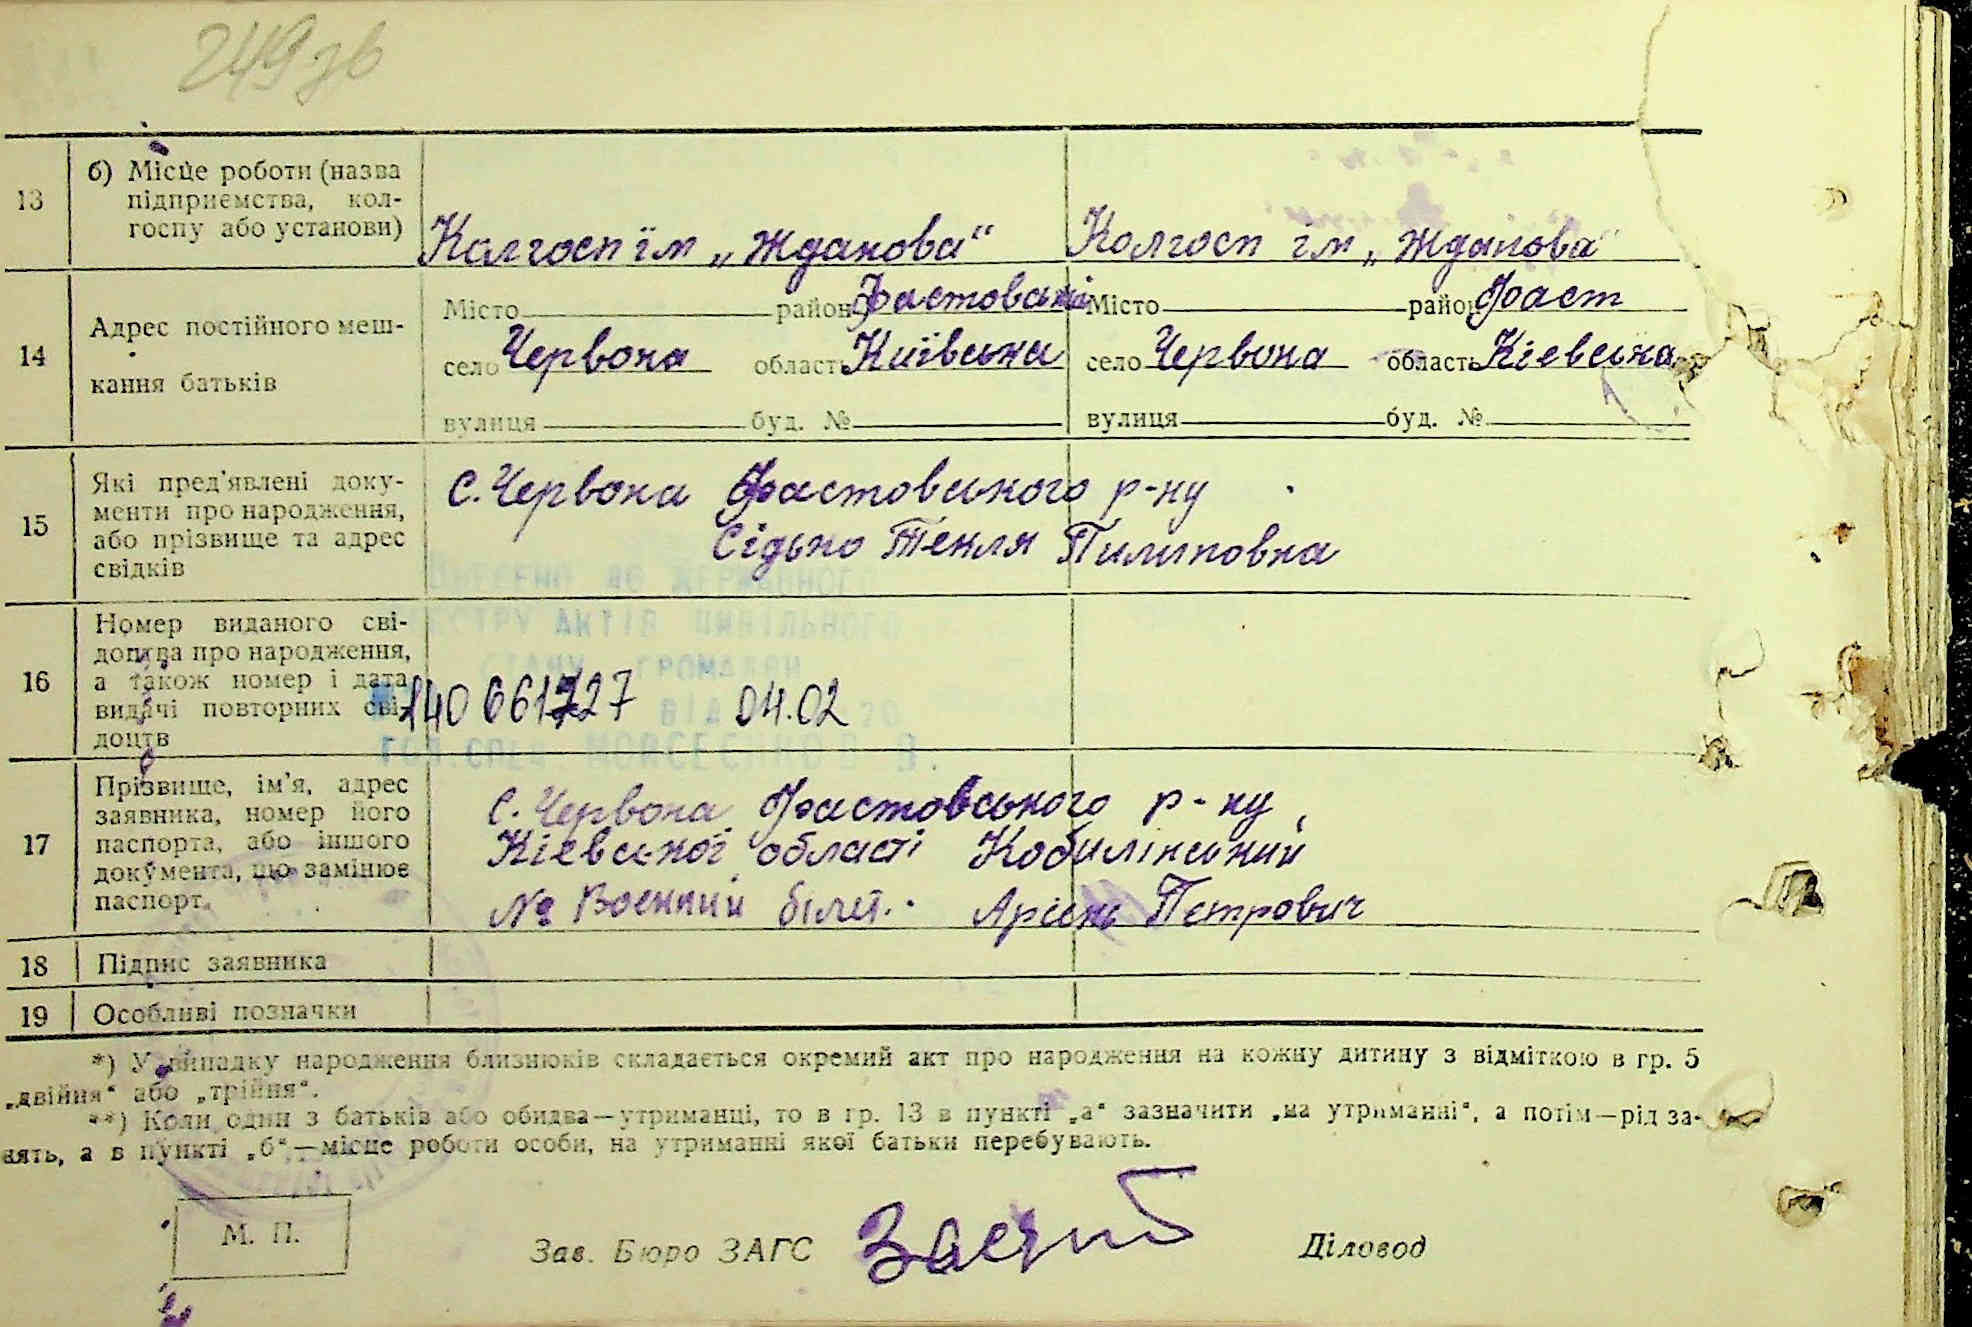 249 зв
13 б) Місце роботи (назва
підприємства, кол-
госпу або установи)
Колгосп їм „Жданова“ Колгосп ім „Жданова“
14 Адрес постійного меш-
кання батьків
Місто район Фастовский Місто район Фаст
село Червона область Київська село Червона область Кіевська
вулиця буд. № вулиця буд. №
15 Які пред'явлені доку-
менти про народження,
або прізвище та адрес
свідків
С. Червона Фастовського р-ну
Сідько Текля Пилиповна
ВНЕСЕНО ДО ДЕРЖАВНОГО
РЕЄСТРУ АКТІВ ЦИВІЛЬНОГО
СТАНУ ГРОМАДЯН
ВІД 20
ГОЛ. СПЕЦ. МОЙСЕЄНКО В. В.
16 Номер виданого сві-
доцтва про народження,
а також номер і дата
видачі повторних сві-
доцтв
140 661727 04.02
17 Прізвище, ім'я, адрес
заявника, номер його
паспорта, або іншого
документа, що замінює
паспорт.
С. Червона Фастовського р-ну,
Кіевської області Кобилінський
№ Военний білет. Арсень Петрович
18 Підпис заявника
19 Особливі позначки
*) У випадку народження близнюків складається окремий акт про народження на кожну дитину з відміткою в гр. 5
„двійня“ або „трійня“.
**) Коли один з батьків або обидва—утриманці, то в гр. 13 в пункті „а“ зазначити „на утриманні“, а потім—рід за-
нять, а в пункті „б“—місце роботи особи, на утриманні якої батьки перебувають.
М. П.
Зав. Бюро ЗАГС Діловод